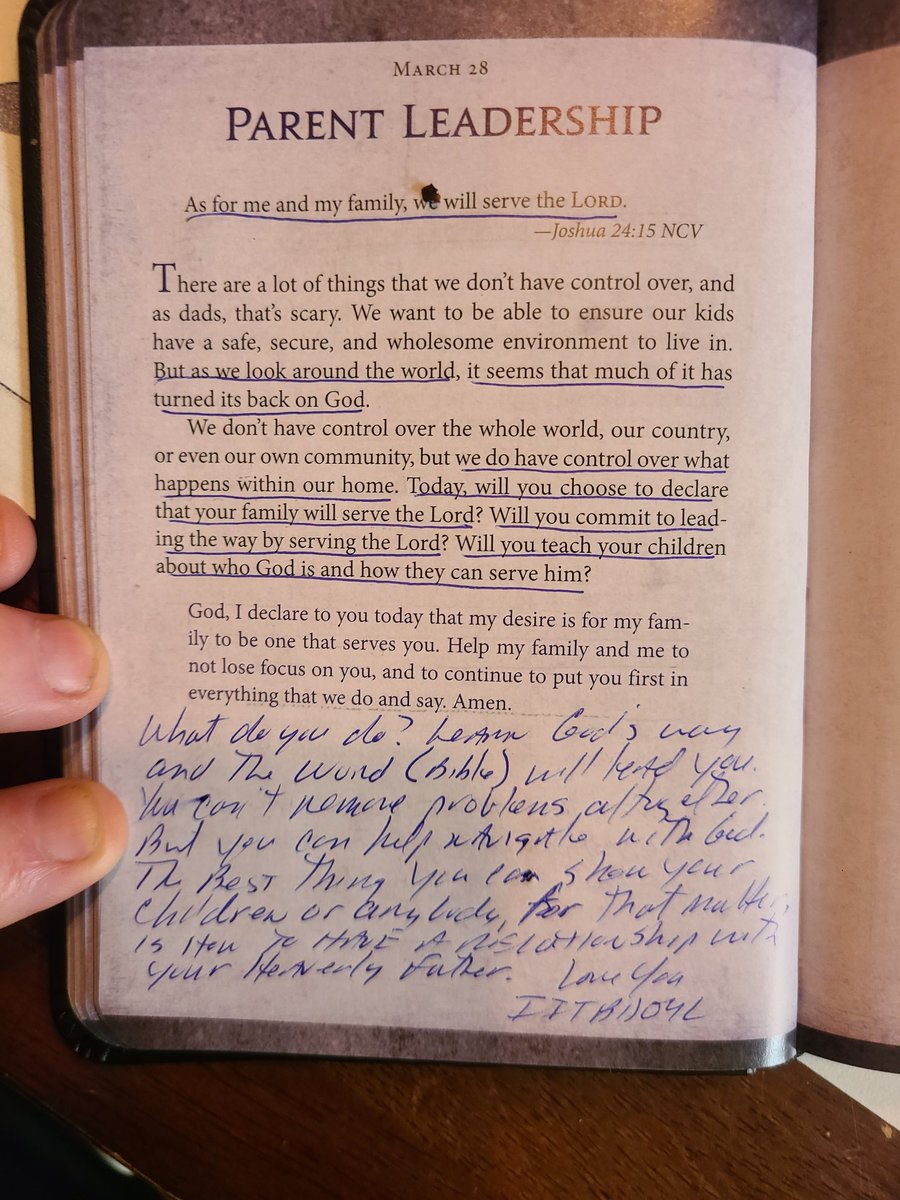 March 28
Parent Leadership
As for me and my family, we will serve the Lord.
—Joshua 24:15 NCV
There are a lot of things that we don't have control over, and
as dads, that's scary. We want to be able to ensure our kids
have a safe, secure, and wholesome environment to live in.
But as we look around the world, it seems that much of it has
turned its back on God.
We don't have control over the whole world, our country,
or even our own community, but we do have control over what
happens within our home. Today, will you choose to declare
that your family will serve the Lord? Will you commit to lead-
ing the way by serving the Lord? Will you teach your children
about who God is and how they can serve him?
God, I declare to you today that my desire is for my fam-
ily to be one that serves you. Help my family and me to
not lose focus on you, and to continue to put you first in
everything that we do and say. Amen.
What do you do? Learn God's way
and The Word (Bible) will lead you.
You can't remove problems altogether.
But you can help navigate with God.
The Best Thing you can show your
children or anybody, for that matter,
is How To HAVE A Relationship with
your Heavenly Father. Love You